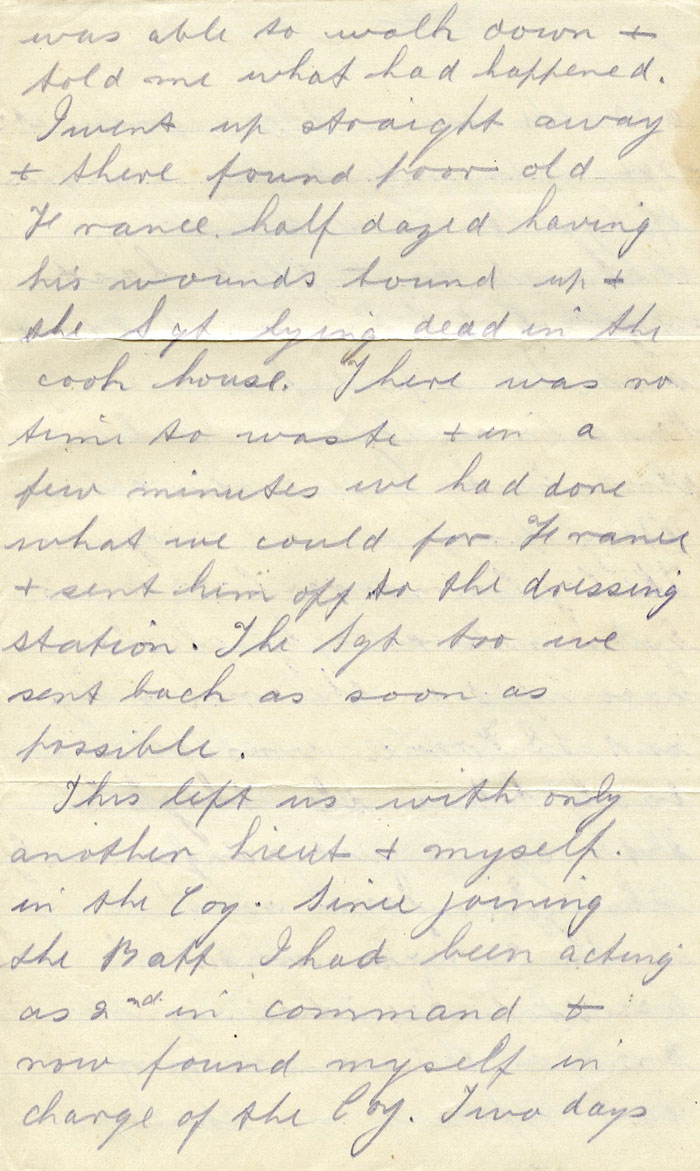 was able to walk down +
told me what had happened.
I went up straight away
+ there found poor old
France. half dazed having
his wounds bound up +
the Sgt lying dead in the
cook house. There was no
time to waste + in a
few minutes we had done
what we could for France
+ sent him off to the dressing
station. The Sgt too we
sent back as soon as
possible.
This left us with only
another Lieut + myself.
in the Coy. Since joining
the Batt I had been acting
as 2nd. in command +
now found myself in
charge of the Coy. Two days